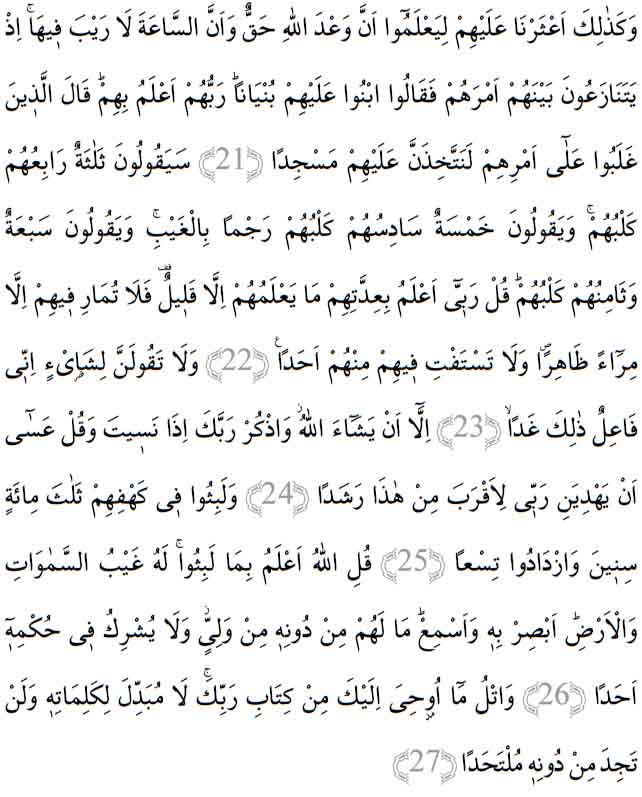 وَكَذٰلِكَ اَعْثَرْنَا عَلَيْهِمْ لِيَعْلَمُٓوا اَنَّ وَعْدَ اللّٰهِ حَقٌّ وَاَنَّ السَّاعَةَ لَا رَيْبَ ف۪يهَاۚ اِذْ
يَتَنَازَعُونَ بَيْنَهُمْ اَمْرَهُمْ فَقَالُوا ابْنُوا عَلَيْهِمْ بُنْيَاناًۜ رَبُّهُمْ اَعْلَمُ بِهِمْۜ قَالَ الَّذ۪ينَ
غَلَبُوا عَلٰٓى اَمْرِهِمْ لَنَتَّخِذَنَّ عَلَيْهِمْ مَسْجِدًا ﴿21﴾ سَيَقُولُونَ ثَلٰثَةٌ رَابِعُهُمْ
كَلْبُهُمْۚ وَيَقُولُونَ خَمْسَةٌ سَادِسُهُمْ كَلْبُهُمْ رَجْماً بِالْغَيْبِۚ وَيَقُولُونَ سَبْعَةٌ
وَثَامِنُهُمْ كَلْبُهُمْۜ قُلْ رَبّ۪ٓي اَعْلَمُ بِعِدَّتِهِمْ مَا يَعْلَمُهُمْ اِلَّا قَل۪يلٌ۠ فَلَا تُمَارِ ف۪يهِمْ اِلَّا
مِرَٓاءً ظَاهِرًاۖ وَلَا تَسْتَفْتِ ف۪يهِمْ مِنْهُمْ اَحَدًا۟ ﴿22﴾ وَلَا تَقُولَنَّ لِشَا۬يْءٍ اِنّ۪ي
فَاعِلٌ ذٰلِكَ غَداًۙ ﴿23﴾ اِلَّٓا اَنْ يَشَٓاءَ اللّٰهُۘ وَاذْكُرْ رَبَّكَ اِذَا نَس۪يتَ وَقُلْ عَسٰٓى
اَنْ يَهْدِيَنِ رَبّ۪ي لِاَقْرَبَ مِنْ هٰذَا رَشَدًا ﴿24﴾ وَلَبِثُوا ف۪ي كَهْفِهِمْ ثَلٰثَ مِائَةٍ
سِن۪ينَ وَازْدَادُوا تِسْعاً ﴿25﴾ قُلِ اللّٰهُ اَعْلَمُ بِمَا لَبِثُواۚ لَهُ غَيْبُ السَّمٰوَاتِ
وَالْاَرْضِۜ اَبْصِرْ بِه۪ وَاَسْمِعْۜ مَا لَهُمْ مِنْ دُونِه۪ مِنْ وَلِيٍّۘ وَلَا يُشْرِكُ ف۪ي حُكْمِه۪ٓ
اَحَدًا ﴿26﴾ وَاتْلُ مَٓا اُو۫حِيَ اِلَيْكَ مِنْ كِتَابِ رَبِّكَۚ لَا مُبَدِّلَ لِكَلِمَاتِه۪ وَلَنْ
تَجِدَ مِنْ دُونِه۪ مُلْتَحَدًا ﴿27﴾